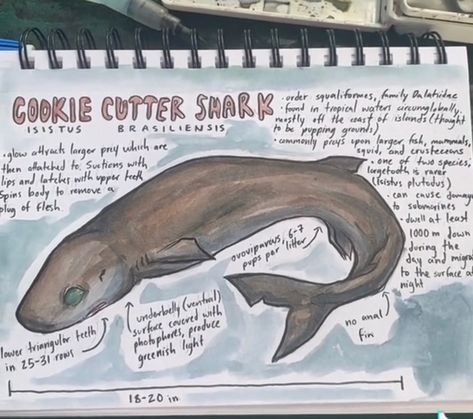 COOKIE CUTTER SHARK
ISISTUS BRASILIENSIS
• glow attracts larger prey which are
then attatched to. Suctions with
lips and latches with upper teeth
Spins body to remove a
plug of flesh
• order squaliformes, family Dalatiidae
• found in tropical waters circumglobally,
mostly off the coast of islands (thought
to be pupping grounds)
• commonly preys upon larger fish, mammals,
squid, and crusteceans
• one of two species
largetooth is rarer
(isistus plutodus)
• can cause damage
to submarines
• dwell at least
1000 m down
during the
day and migra
to the surface at
night
ovoviviparous, 6-7
pups per litter
lower triangular teeth
in 25-31 rows
underbelly (ventral)
surface covered with
photophores, produce
greenish light
no anal
fin
18-20 in